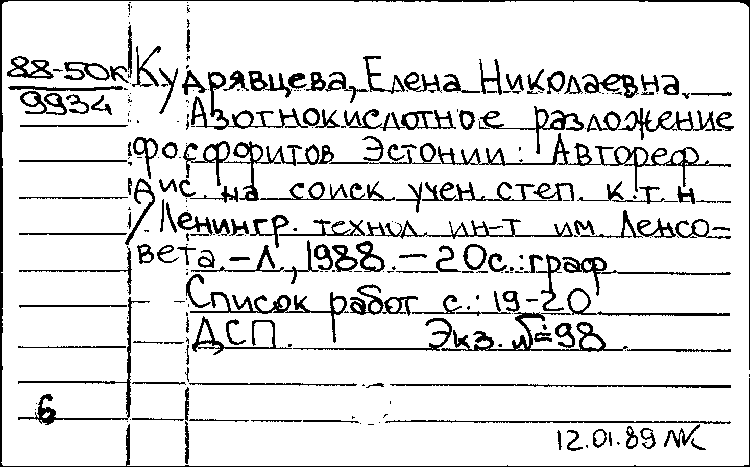 88-50к Кудрявцева, Елена Николаевна.
9934 Азотнокислотное разложение
фосфоритов Эстонии: Автореф.
дис. на соиск. учен. степ. к.т.н
/ Ленингр. технол. ин-т им. Ленсо-
вета. – Л., 1988. – 20с.: граф.
Список работ с.: 19-20
ДСП. Экз. №98.
6
12.01.89